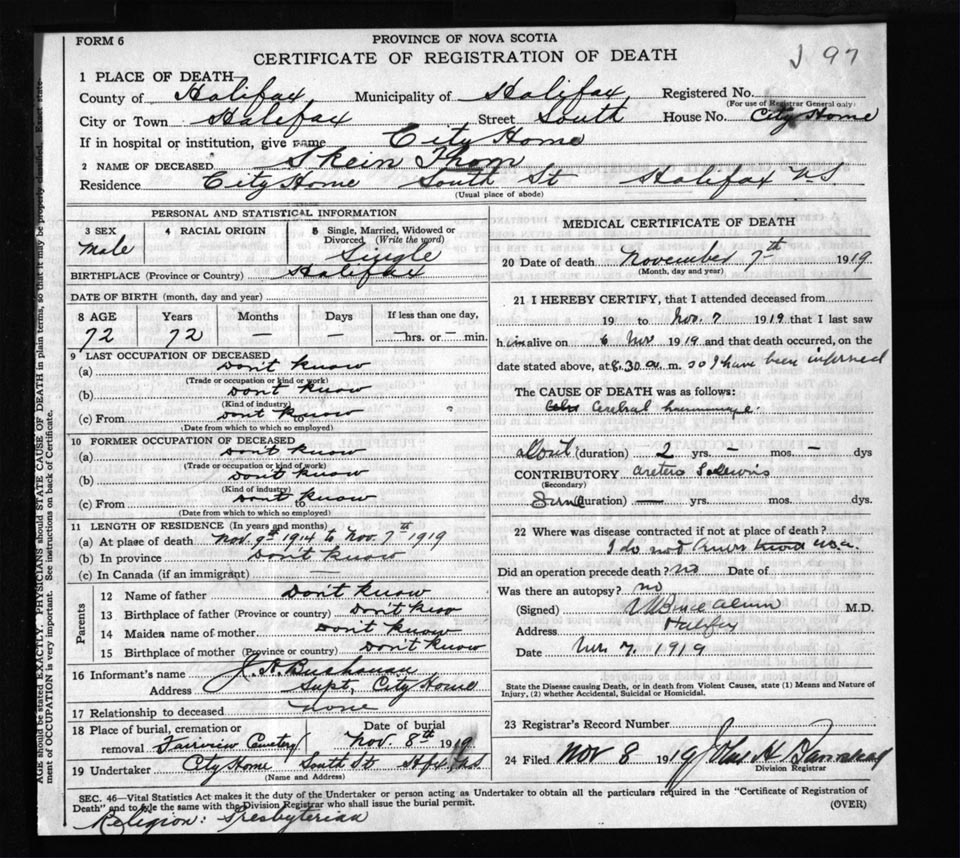 FORM 6
PROVINCE OF NOVA SCOTIA
CERTIFICATE OF REGISTRATION OF DEATH
J 97
1 PLACE OF DEATH
County of Halifax, Municipality of Halifax, Registered No.
(For use of Registrar General only)
City or Town Halifax Street South House No. City Home
If in hospital or institution, give name City Home
2 NAME OF DECEASED Skein Thom
Residence City Home South St Halifax N.S.
(Usual place of abode)
PERSONAL AND STATISTICAL INFORMATION
3 SEX Male
4 RACIAL ORIGIN
5 Single, Married, Widowed or Divorced (Write the word)
Single
BIRTHPLACE (Province or Country) Halifax
DATE OF BIRTH (month, day and year)
8 AGE Years Months Days If less than one day,
72 72 — — —hrs. or — min.
9 LAST OCCUPATION OF DECEASED
(a) Don't know
(Trade or occupation or kind or work)
(b) Don't know
(Kind of industry)
(c) From Don't know to
(Date from which to which so employed)
10 FORMER OCCUPATION OF DECEASED
(a) Don't know
(Trade or occupation or kind of work)
(b) Don't know
(Kind of industry)
(c) From Don't know to
(Date from which to which so employed)
11 LENGTH OF RESIDENCE (In years and months)
(a) At place of death Nov. 9th 1914 to Nov. 7th 1919
(b) In province Don't know
(c) In Canada (if an immigrant) —
Parents
12 Name of father Don't know
13 Birthplace of father (Province or country) Don't know
14 Maiden name of mother Don't know
15 Birthplace of mother (Province or country) Don't know
16 Informant's name J. A. Buchanan
Address Supt, City Home
17 Relationship to deceased None
18 Place of burial, cremation or removal Fairview Cemetery Date of burial Nov 8th 1919
19 Undertaker City Home South St Hfx N.S
(Name and Address)
MEDICAL CERTIFICATE OF DEATH
20 Date of death November 7th 1919
(Month, day and year)
21 I HEREBY CERTIFY, that I attended deceased from
19 to Nov. 7 1919 that I last saw
him alive on 6 Nov. 1919 and that death occurred, on the
date stated above, at 8.30 a. m. so I have been informed
The CAUSE OF DEATH was as follows:
Cerebral
About (duration) 2 yrs. — mos. — dys
CONTRIBUTORY
(Secondary)
(duration) — yrs. mos. dys.
22 Where was disease contracted if not at place of death?
I do not
Did an operation precede death? no Date of
Was there an autopsy? no
(Signed) M.D.
Address Halifax
Date Nov. 7. 1919
State the Disease causing Death, or in death from Violent Causes, state (1) Means and Nature of
Injury, (2) whether Accidental, Suicidal or Homicidal.
23 Registrar's Record Number
24 Filed Nov 8 1919 John A
Division Registrar
SEC. 46—Vital Statistics Act makes it the duty of the Undertaker or person acting as Undertaker to obtain all the particulars required in the "Certificate of Registration of
Death" and to file the same with the Division Registrar who shall issue the burial permit.
(OVER)
Religion: Presbyterian
AGE should be stated EXACTLY. PHYSICIANS should STATE CAUSE OF DEATH in plain terms, so that it may be properly classified. Exact state-
ment of OCCUPATION is very important. See instructions on back of Certificate.